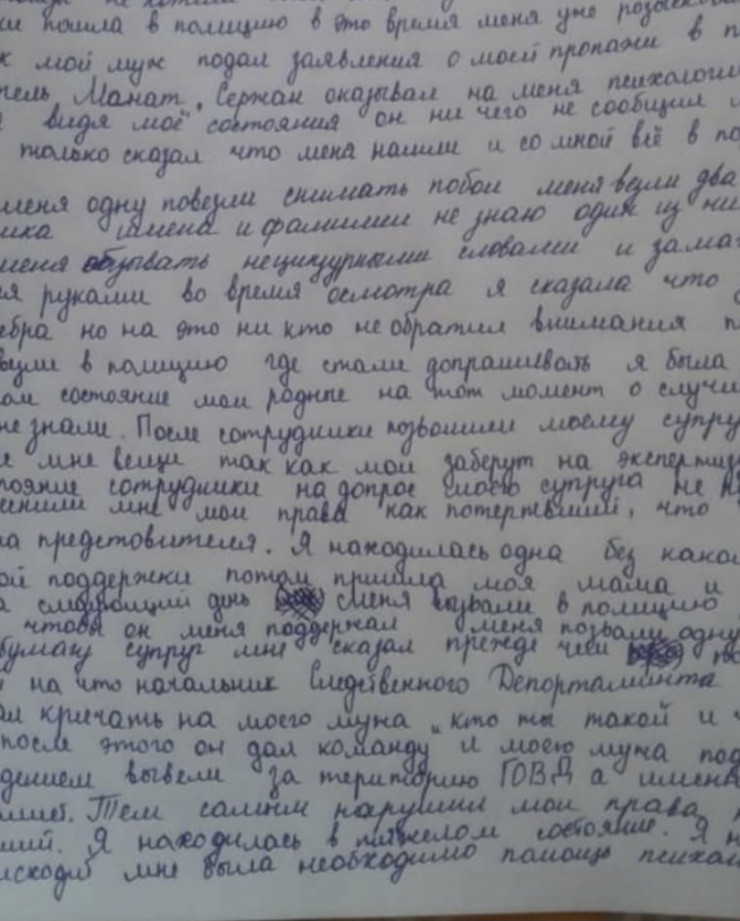 пошла в полицию в это время меня уже
мой муж подал заявления о моей пропажи в
Манат, Сержан оказывал на меня психологи
видя моё состояния он ни чего не сообщил
только сказал что меня нашли и со мной всё в по
меня одну повезли снимать побои меня везли два
имена и фамилии не знаю один из ни
меня обзывать нецинзурными словами и зама
руками во время осмотра я сказала что
ребра но на это ни кто не обратил внимания
везли в полицию где стали допрашивать я была
ом состояние мои родные на тот момент о случи
не знали. После сотрудники позвонили моему супру
мне вещи так как мои заберут на экспертиз
тояние сотрудники на допрос моего супруга не
снили мне мои права как потертевший, что
на предстовителя. Я находилась одна без како
ой поддержки потом пришла моя мама и
следующий день сменя возвали в полицию
чтобы он меня поддержал меня позвали одну
бумагу супруг мне сказал прежде чем
на что начальник Следственного Депортаминта
ал кричать на моего мужа "кто ты такой и
после этого он дал команду и моего мужа под
дением вывели за територию ГОВД а имен
Тем самым нарушил мои права
ший. Я находилась в тяжелом состояние. Я н
исходи мне была необходимо помощь психол